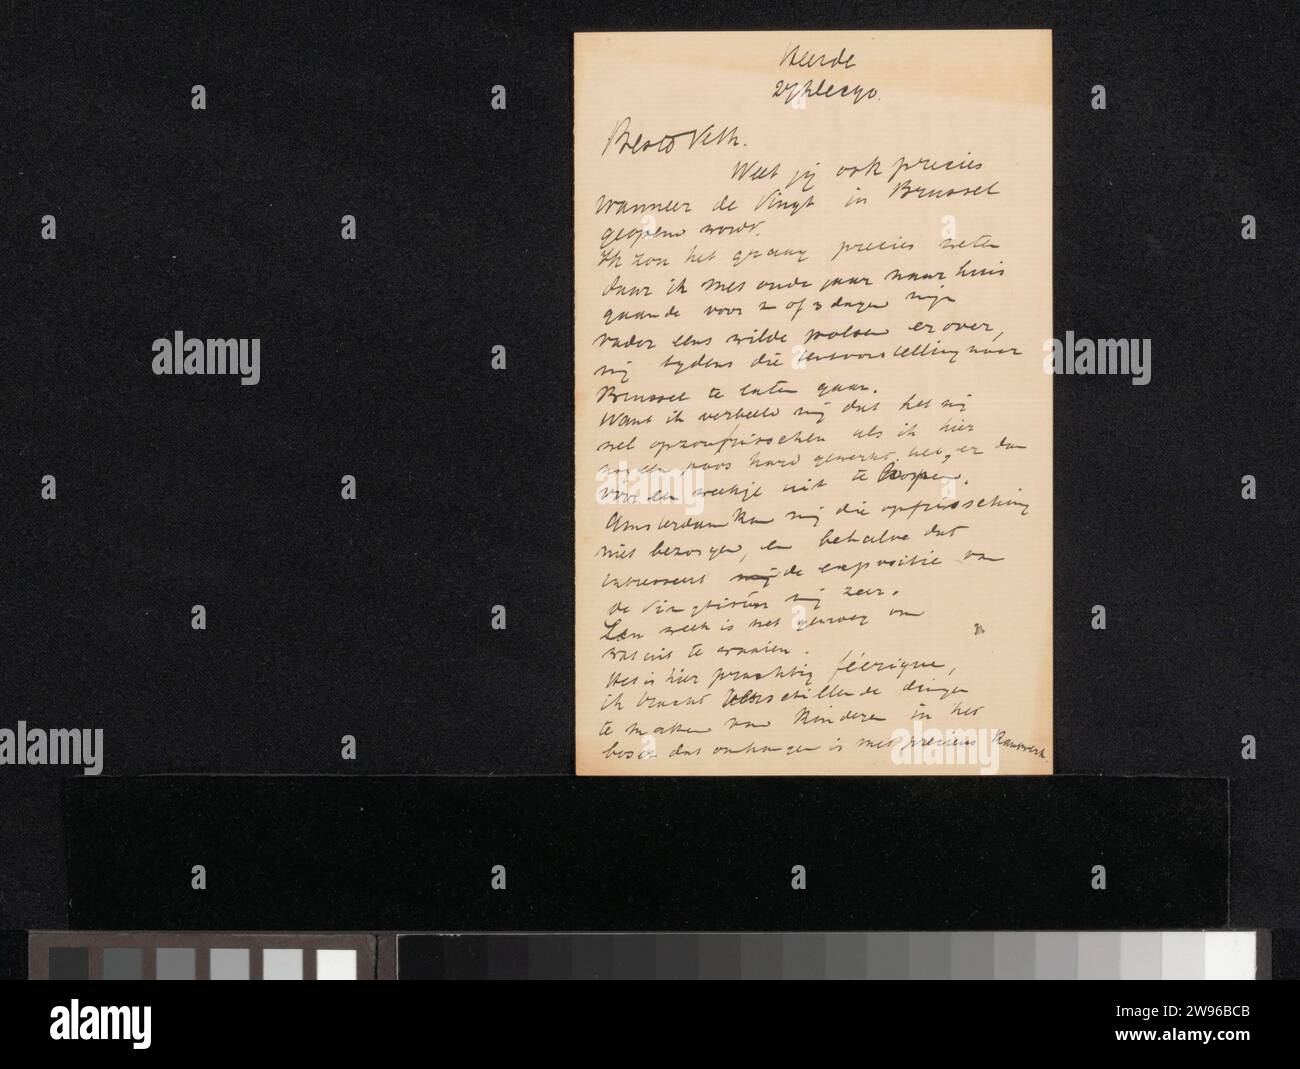 Heerde
Beste Veth.
Weet jij ook precies
wanneer de Vingt in Brussel
geopend wordt.
Ik zou het graag precies weten
daar ik met oude jaar naar huis
gaande voor 2 of 3 dagen mijn
vader eens wilde polsen er over,
mij tydens die tentoonstelling naar
Brussel te laten gaan.
Want ik verbeeld mij dat het mij
wel op zou frisschen als ik hier
nog een poos hard gewerkt heb, er dan
voor een weekje uit te loopen.
Amsterdam kan mij die opfrissching
niet bezorgen, en behalve dat
interesseert de expositie van
de Vingtisten mij zeer.
Een week is net genoeg om
wat uit te waaien.
Het is hier prachtig féerique,
ik tracht verschillende dingen
te maken van kinderen in het
bosch dat ontvangen is met precieus kantwerk.
alamy
alamy
alamy
a
Image ID: 2W96BCB
www.alamy.com